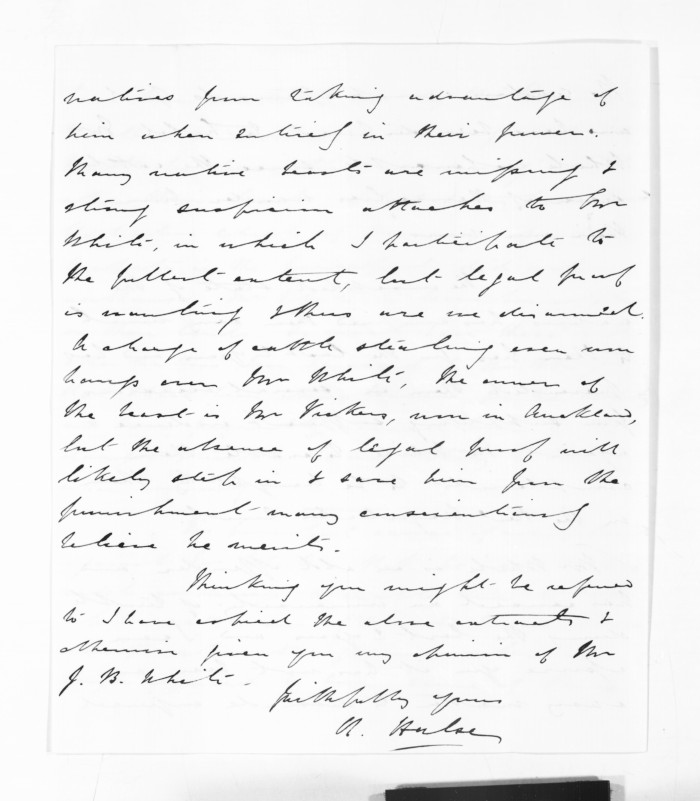 natives from taking advantage of
him when entirely in their power.
Many native beasts are missing &
strong suspicion attaches to Mr
White, in which I participate to
the fullest extent, but legal proof
is wanting & thus are we disarmed.
A charge of cattle stealing even now
hangs over Mr White, the owner of
the beast is Mr Vickers, now in Auckland,
but the absence of legal proof will
likely step in & save him from the
punishment many conscientiously
believe he merits.
Thinking you might be referred
to I have copied the above extracts &
otherwise given you my opinion of Mr
J. B. White.
Faithfully yours
H. Halse